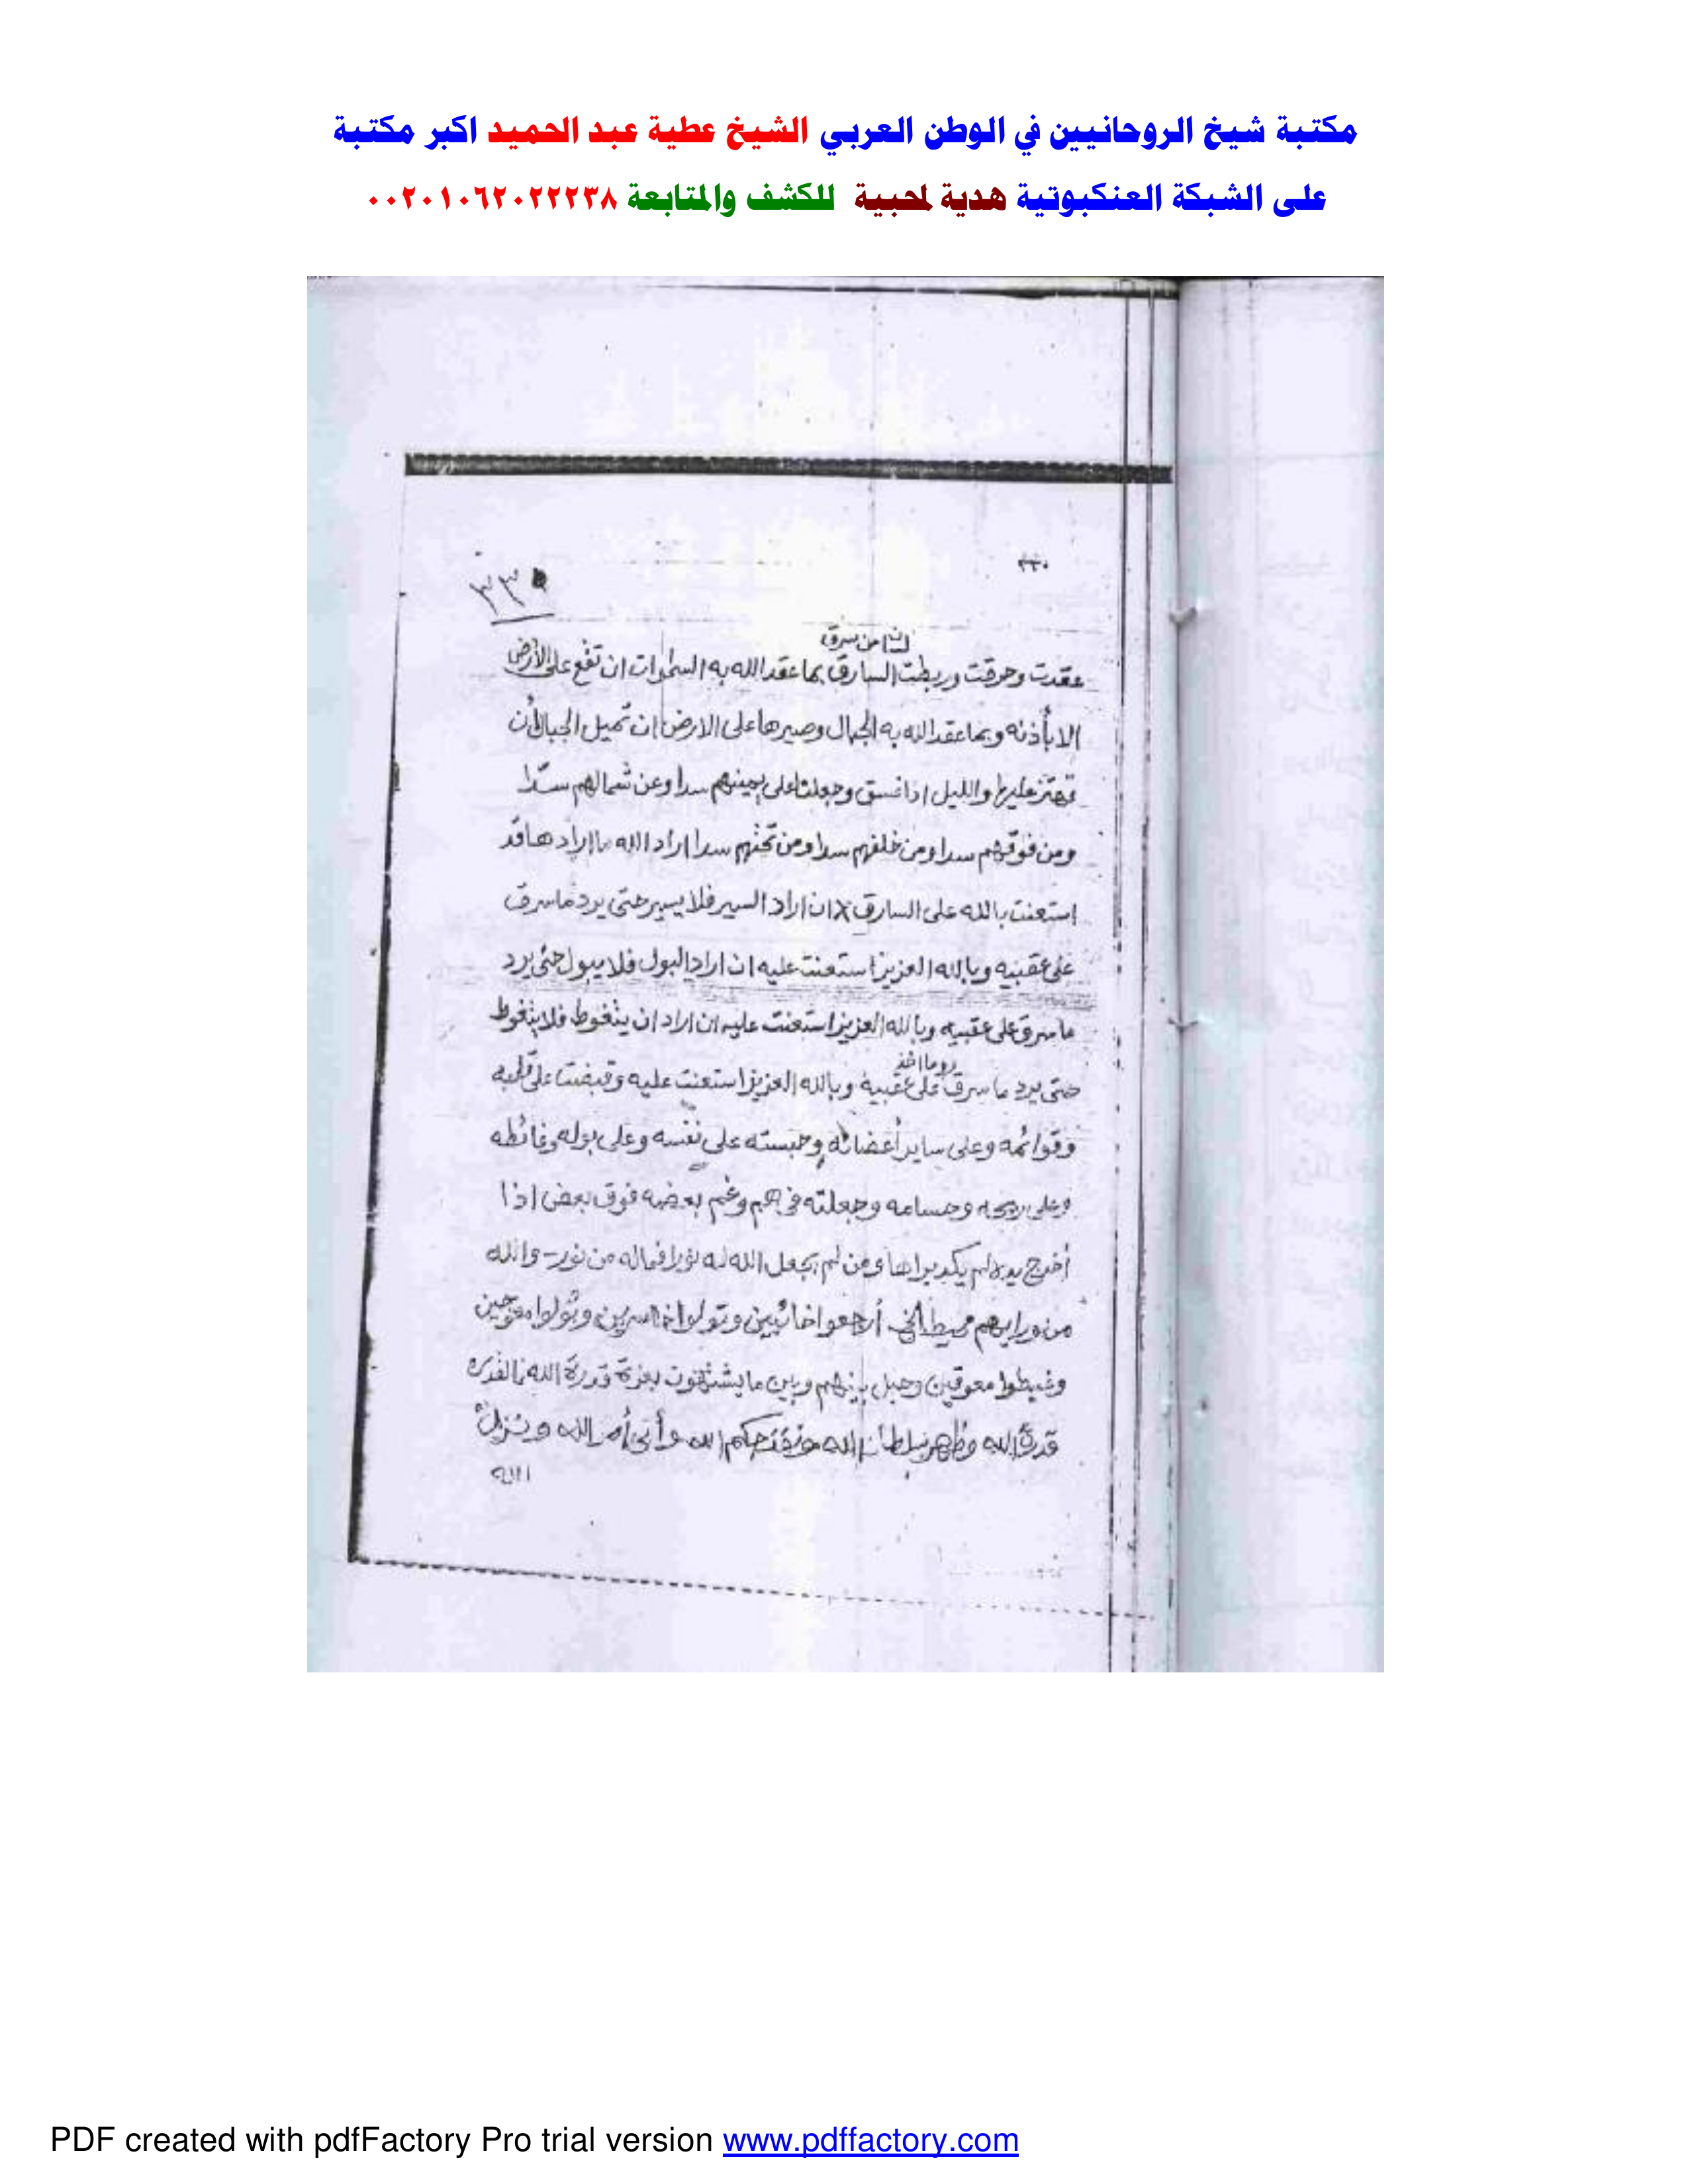 مكتبة شيخ الروحانيين في الوطن العربي الشيخ عطية عبد الحميد اكبر مكتبة
على الشبكة العنكبوتية هدية لمحبية للكشف والمتابعة ٠٠٢٠١٠٦٢٠٢٢٢٣٨
٣٣٠
٣٣٠
من سرق
عقدت وحرقت وربطت السارق بما عقد الله به السموات ان تقع على الأرض
الا بأذنه وبما عقد الله به الجبال وصيرها على الارض ان تميل الجبال أن
تهتز عليها والليل اذا غسق وجعلنا على يمينهم سدا وعن شمالهم سدّا
ومن فوقهم سدا ومن خلفهم سدا ومن تحتهم سدا اراد الله ما ارادها قد
استعنت بالله على السارق ان اراد السير فلا يسير حتى يرد ما سرق
على عقبيه وبالله العزيز استعنت عليه ان اراد البول فلا يبول حتى يرد
ما سرق على عقبيه وبالله العزيز استعنت عليه ان اراد ان يتغوط فلا يتغوط
وما اخذ
حتى يرد ما سرق على عقبيه وبالله العزيز استعنت عليه وقبضت على قلبه
وقوائمه وعلى ساير أعضائه وحبسته على نفسه وعلى بوله وغائطه
وعلى ريحه ومسامه وجعلته في هم وغم بعضه فوق بعض اذا
أخرج يده لم يكد يراها ومن لم يجعل الله له نورا فماله من نور والله
من ورايهم محيط الخ أرجعوا خائبين وتولوا خاسرين وتولوا
معوقين وحيل بينهم وبين ما يشتهون بعزة قدرة الله نالقدره
قدرة الله وظهر سلطان الله ونفذ حكم الله وأتى أمر الله ونزل
الله
PDF created with pdfFactory Pro trial version www.pdffactory.com